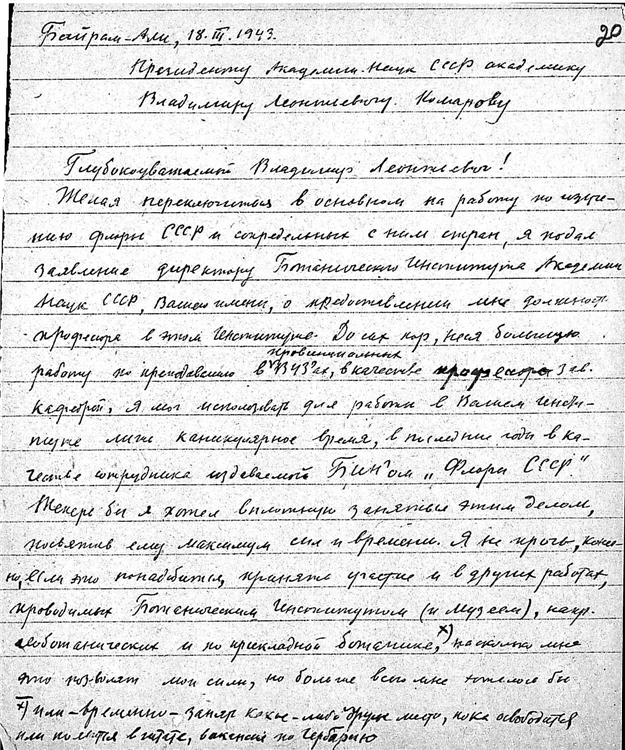 Байрам-Али, 18.III.1943. 20
Президенту Академии Наук СССР академику
Владимиру Леонтьевичу Комарову
Глубокоуважаемый Владимир Леонтьевич!
Желая переключиться в основном на работу по изуче-
нию флоры СССР и сопредельных с ним стран, я подал
заявление директору Ботанического Института Академии
Наук СССР, Вашего имени, о предоставлении мне должност.
профессора в этом Институте. До сих пор, неся большую
провинциальных
работу по преподаванию в ВУЗ'ах, в качестве зав.
кафедрой, я мог использовать для работы в Вашем Инсти-
туте лишь каникулярное время, в последние годы в ка-
честве сотрудника издаваемой БИН'ом „Флоры СССР"
Теперь бы я хотел вплотную заняться этим делом,
посвятив ему максимум сил и времени. Я не прочь, конеч-
но, если это понадобится, принять участие и в других работах,
проводимых Ботаническим Институтом (и Музеем), напр.
геоботанических и по прикладной ботанике,х) насколько мне
это позволят мои силы, но больше всего мне хотелось бы
х) или – временно – занять какое-либо другое место, пока освободится
или появится в штате, вакансия по Гербарию